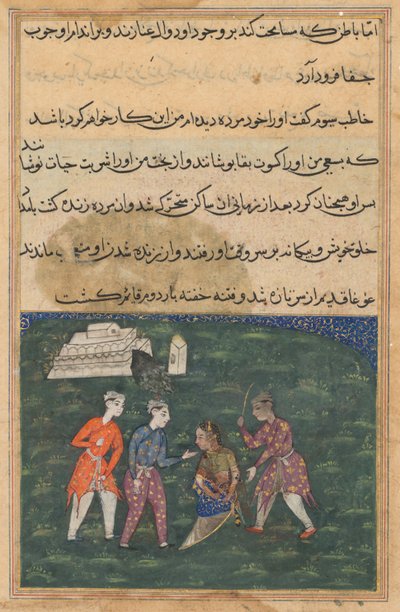 اما باطن که مسامحت کند بر وجود او دوال عنا زند و بر اندام او چوب
جفا فرود آرد
خاطب سیوم گفت او را خود مرده دیده‌ام من این کار خواهم کرد باشد
که بسعی من او را کسوت بقا بپوشانند و از بخت من او را شربت حیات نوشانند
پس او همچنان کرد بعد از زمانی آن ساکن متحرک شد و آن مرده زنده گشت
خلق خویش و بیگانه بر سر وقت او رفتند و از زنده شدن او ماندند
غوغا قدیم از سر تازه شد و فتنه خفته بار دوم قائم گشت